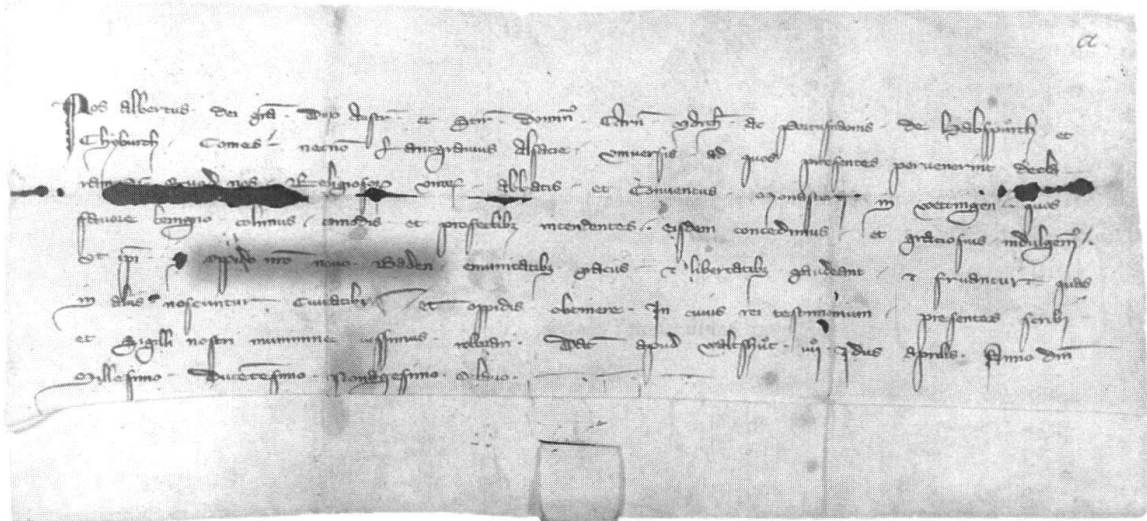 a
Nos Albertus · dei gra̅ · Dux Austr̅ · et Styr̅ · Domin̅ · Carn̅ · · ac Portusnaonis · de Habspurch · et
Chyburch · Comes · necno̅ Lantgravius Alsacie · Universis · ad quos presentes pervenerint decla
 quod nos Religiosos · Abbatis · et Conventus · Monast̅ in Wettingen · quos
favore benigno · colimus · co̅modis et profectib; intendentes · eisdem concedimus · et graciosius indulgem9 ·
Ut ipi̅ oppido nr̅o novo · Baden emunitatib; graciis · et libertatib; gaudeant · et fruantur quas
in aliis noscuntur Civitatib; · et oppidis obtinere · In cuius rei testimonium · presentes scribi
et Sigilli nostri munimine iussimus · · Dat̅ apud Waltshut · · Idus Aprilis · Anno Dni̅
Millesimo · Ducentesimo · Nonagesimo · octavo ·